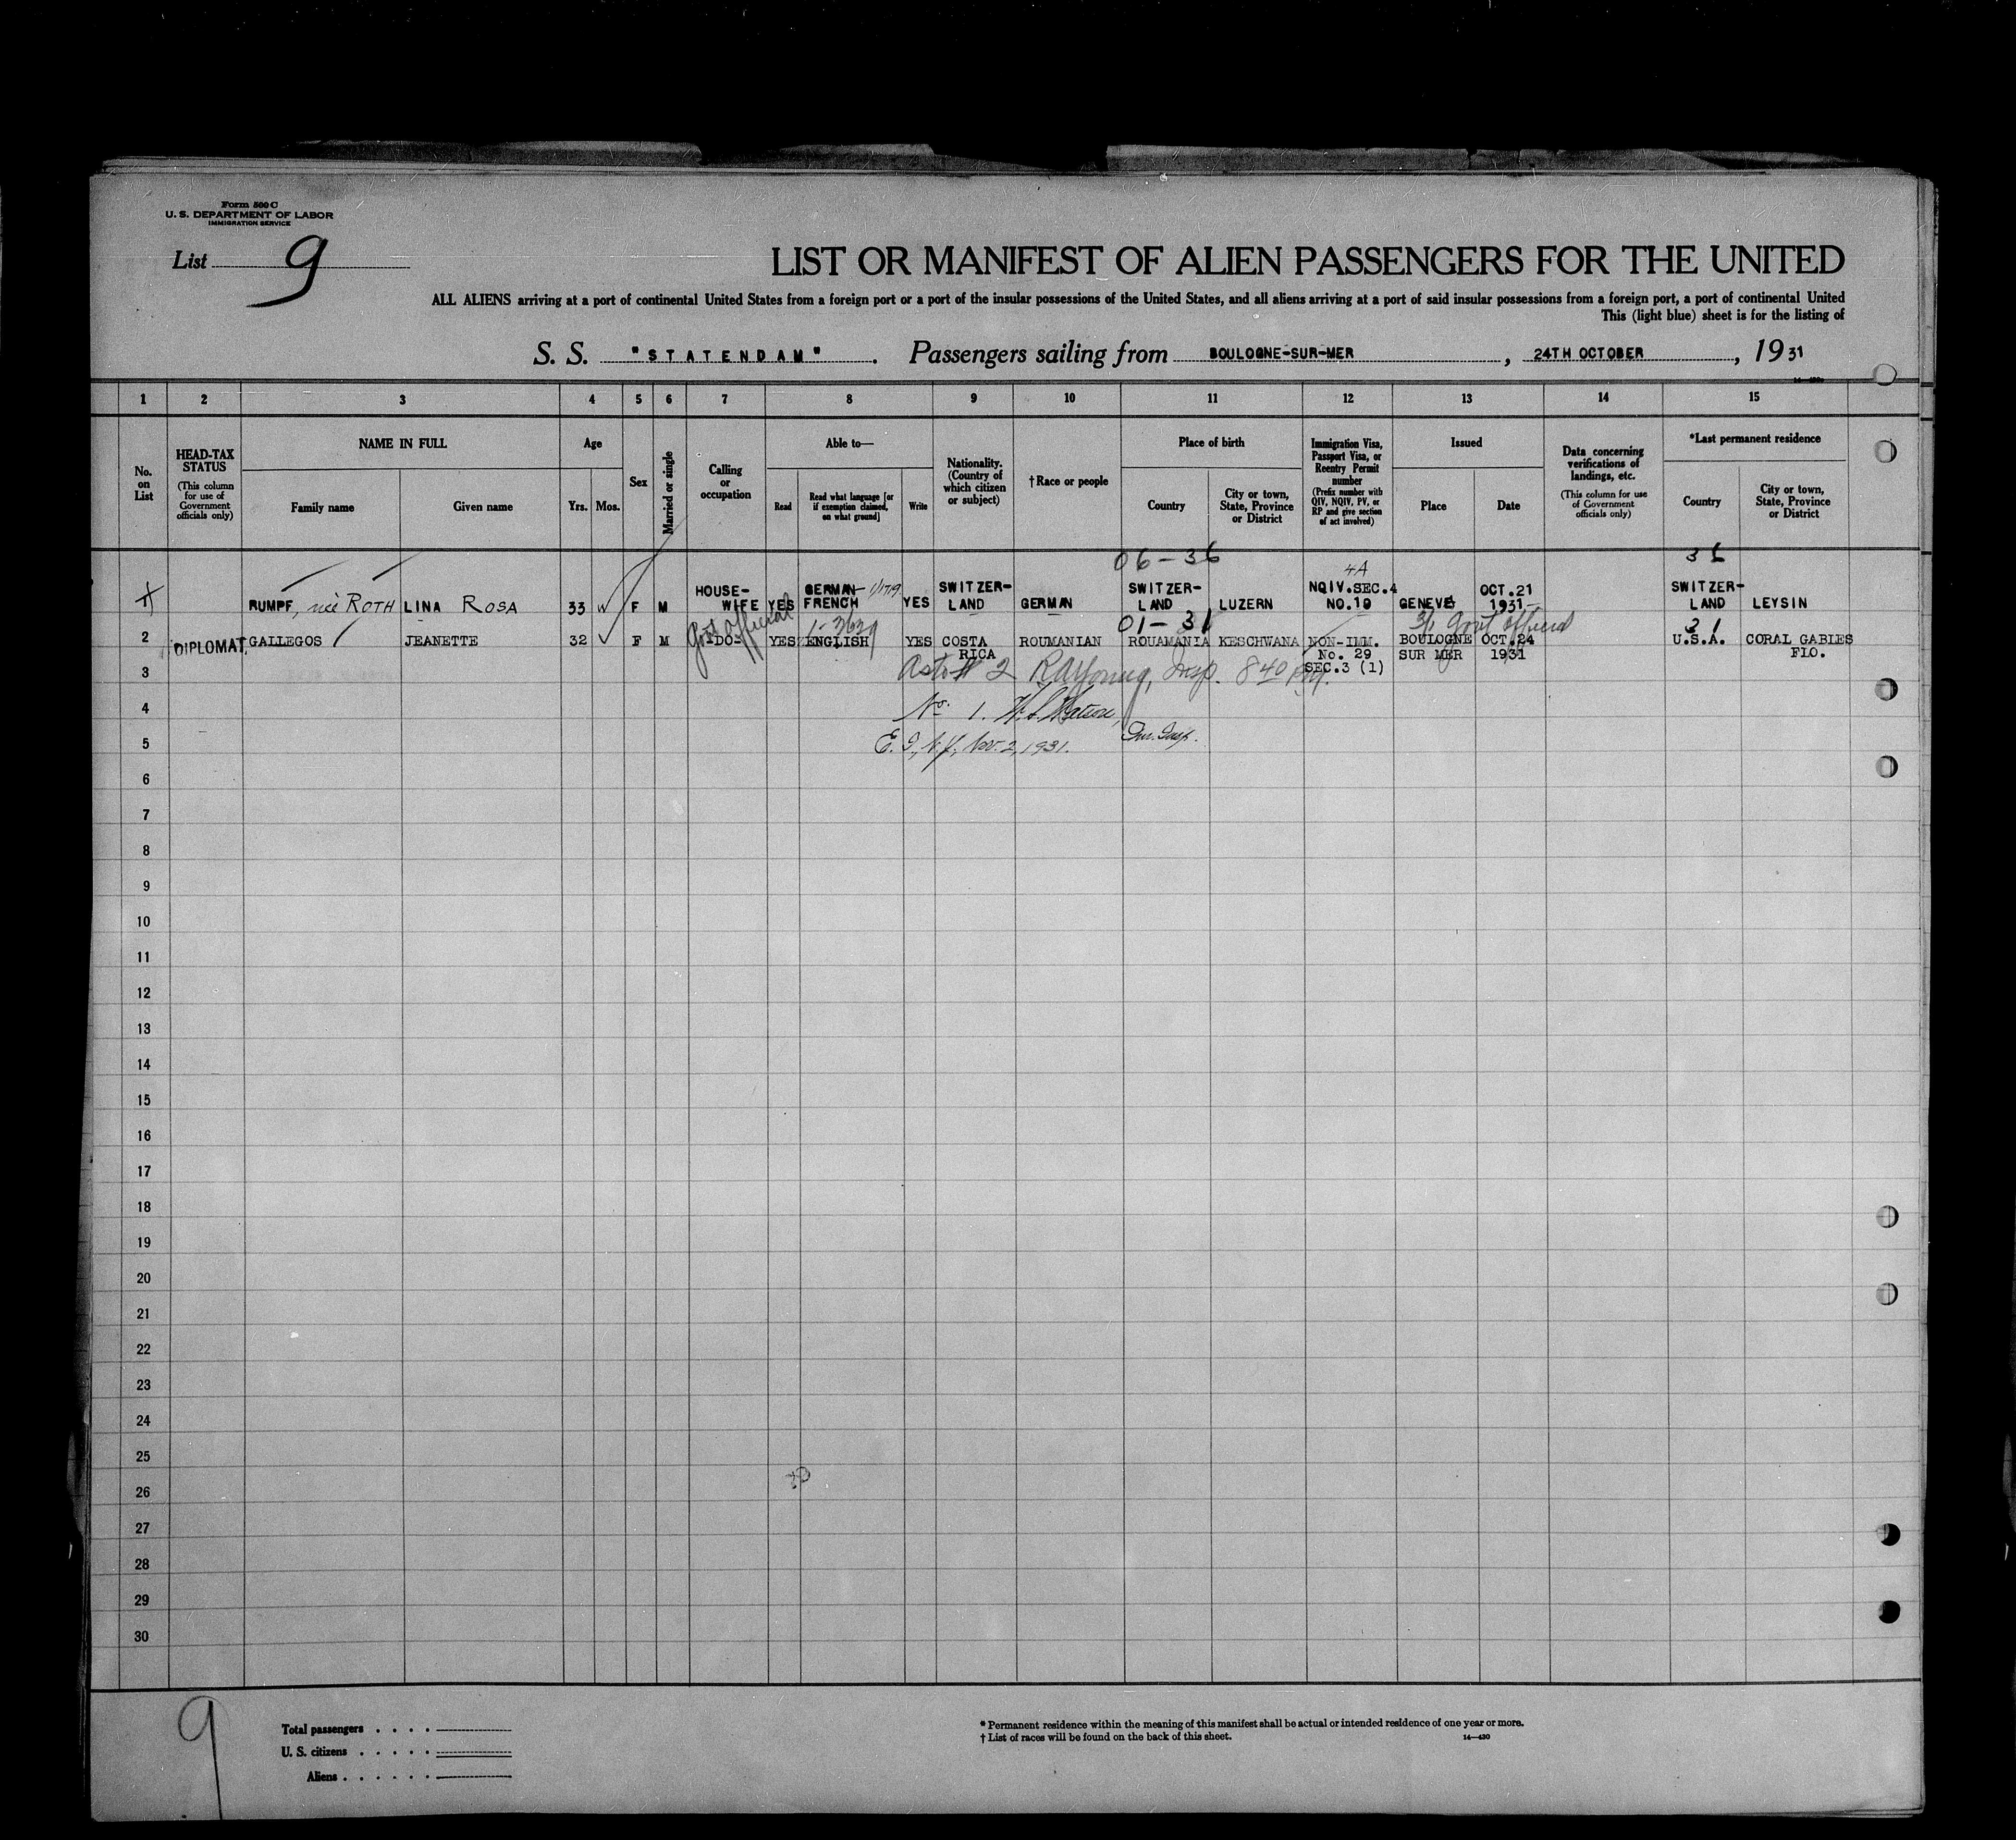 Form 500 C
U. S. DEPARTMENT OF LABOR
IMMIGRATION SERVICE
List 9
LIST OR MANIFEST OF ALIEN PASSENGERS FOR THE UNITED
ALL ALIENS arriving at a port of continental United States from a foreign port or a port of the insular possessions of the United States, and all aliens arriving at a port of said insular possessions from a foreign port, a port of continental United
This (light blue) sheet is for the listing of
S. S. "STATENDAM". Passengers sailing from BOULOGNE-SUR-MER, 24TH OCTOBER, 1931
1 2 3 4 5 6 7 8 9 10 11 12 13 14 15
No. on List
HEAD-TAX STATUS (This column for use of Government officials only)
NAME IN FULL
Family name Given name
Age
Yrs. Mos.
Sex
Married or single
Calling or occupation
Able to—
Read
Read what language [or if exemption claimed, on what ground]
Write
Nationality. (Country of which citizen or subject)
†Race or people
Place of birth
Country
City or town, State, Province or District
Immigration Visa, Passport Visa, or Reentry Permit number (Prefix number with QIV, NQIV, PV, or RP and give section of act involved)
Issued
Place Date
Data concerning verifications of landings, etc. (This column for use of Government officials only)
*Last permanent residence
Country
City or town, State, Province or District
06-36 36
4A
RUMPF, née ROTH LINA ROSA 33 F M HOUSE-WIFE YES GERMAN FRENCH YES SWITZER-LAND GERMAN SWITZER-LAND LUZERN NQIV.SEC.4 NO.10 GENEVE OCT.21 1931 SWITZER-LAND LEYSIN
01-31 3/1 Gov't Official 31
2 DIPLOMAT GALLEGOS JEANETTE 32 F M -DO- Gov't Official YES ENGLISH YES COSTA RICA ROUMANIAN ROUAMANIA KESCHWANA NON-IMM. No. 29 SEC.3 (1) BOULOGNE SUR MER OCT.24 1931 U.S.A. CORAL GABLES FLO.
3
As to # 2 Insp. 840 PM.
4
No. 1. Watson,
5
E. I., N.Y., Nov. 2, 1931. Imm. Insp.
6
7
8
9
10
11
12
13
14
15
16
17
18
19
20
21
22
23
24
25
26
27
28
29
30
9
Total passengers
U. S. citizens
Aliens
* Permanent residence within the meaning of this manifest shall be actual or intended residence of one year or more.
† List of races will be found on the back of this sheet.
14—430